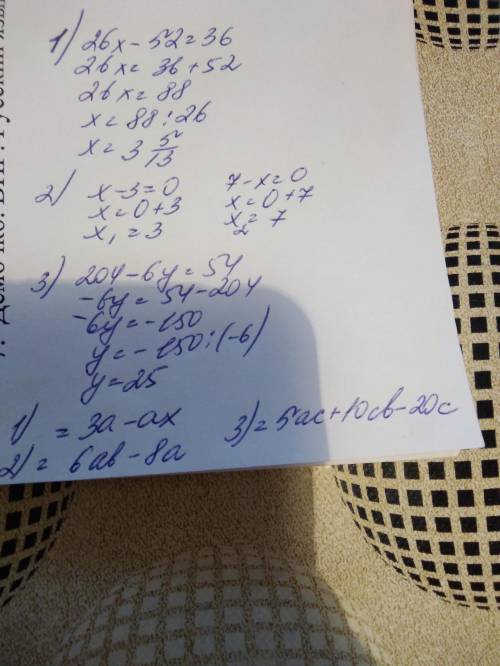 1) 26x - 52 = 36
26x = 36 + 52
26x = 88
x = 88 : 26
x = 3 5/13
2) x - 3 = 0
x = 0 + 3
x₁ = 3
7 - x = 0
x = 0 + 7
x₂ = 7
3) 204 - 6y = 54
-6y = 54 - 204
-6y = -150
y = -150 : (-6)
y = 25
1) = 3a - ax
2) = 6ab - 8a
3) = 5ac + 10cb - 20c